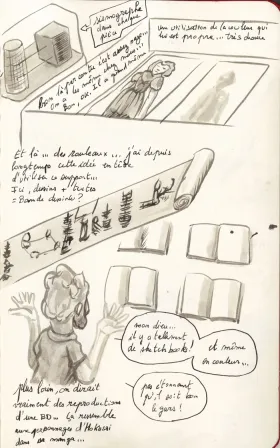 sismographe
dans
une utilisation de la couleur qui
lui est propre... très douce
Bon là par contre c'est assez
on a les mêmes chez
Bon, ok. Il a quand même
Et là... des rouleaux... j'ai depuis
longtemps cette idée en tête
d'utiliser ce support...
Ici, dessins + textes
= Bande dessinée ?
mon dieu...
il y a tellement
de sketchbooks !
et même
en couleur...
pas étonnant
qu'il soit bon
le gars !
plus loin, on dirait
vraiment des reproductions
d'une BD... ça ressemble
aux personnages d'Hokusai
dans sa manga...